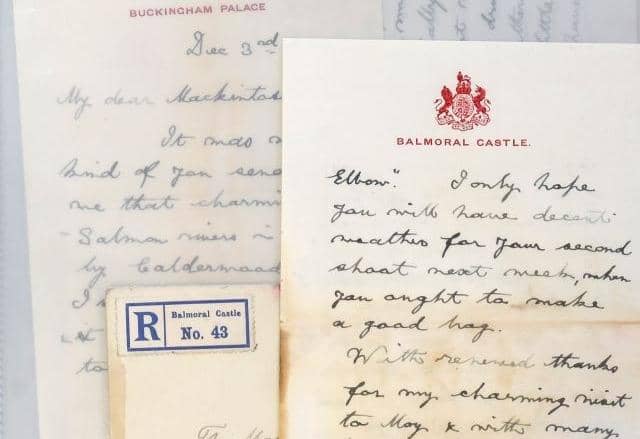 BUCKINGHAM PALACE
Dec 3rd
My dear Mackintos
It was
kind of you send
me that charmi
Salmon rivers in
by Calderwood
I
to
R
Balmoral Castle
No. 43
BALMORAL CASTLE.
Elbow". I only hope
you will have decent
weather for your second
shoot next week, when
you ought to make
a good bag.
With renewed thanks
for my charming visit
to Moy & with many